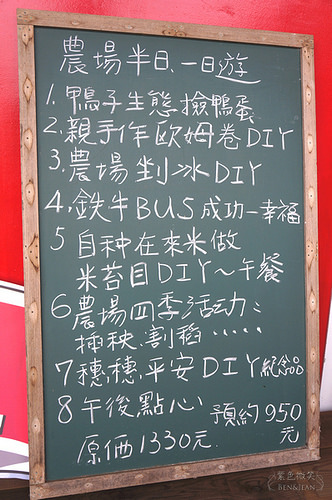 農場半日、一日遊
1.鴨子生態撿鴨蛋
2.親手作歐姆卷DIY
3.農場剉冰DIY
4.鉄牛BUS成功—幸福
5 自种在來米做
米苔目DIY～午餐
6農場四季活动：
挿秧.割稻……
7穗穗平安DIY紀念品
8午後點心 預約950
元
原価1330元.
紫色微笑
BEN&JEAN